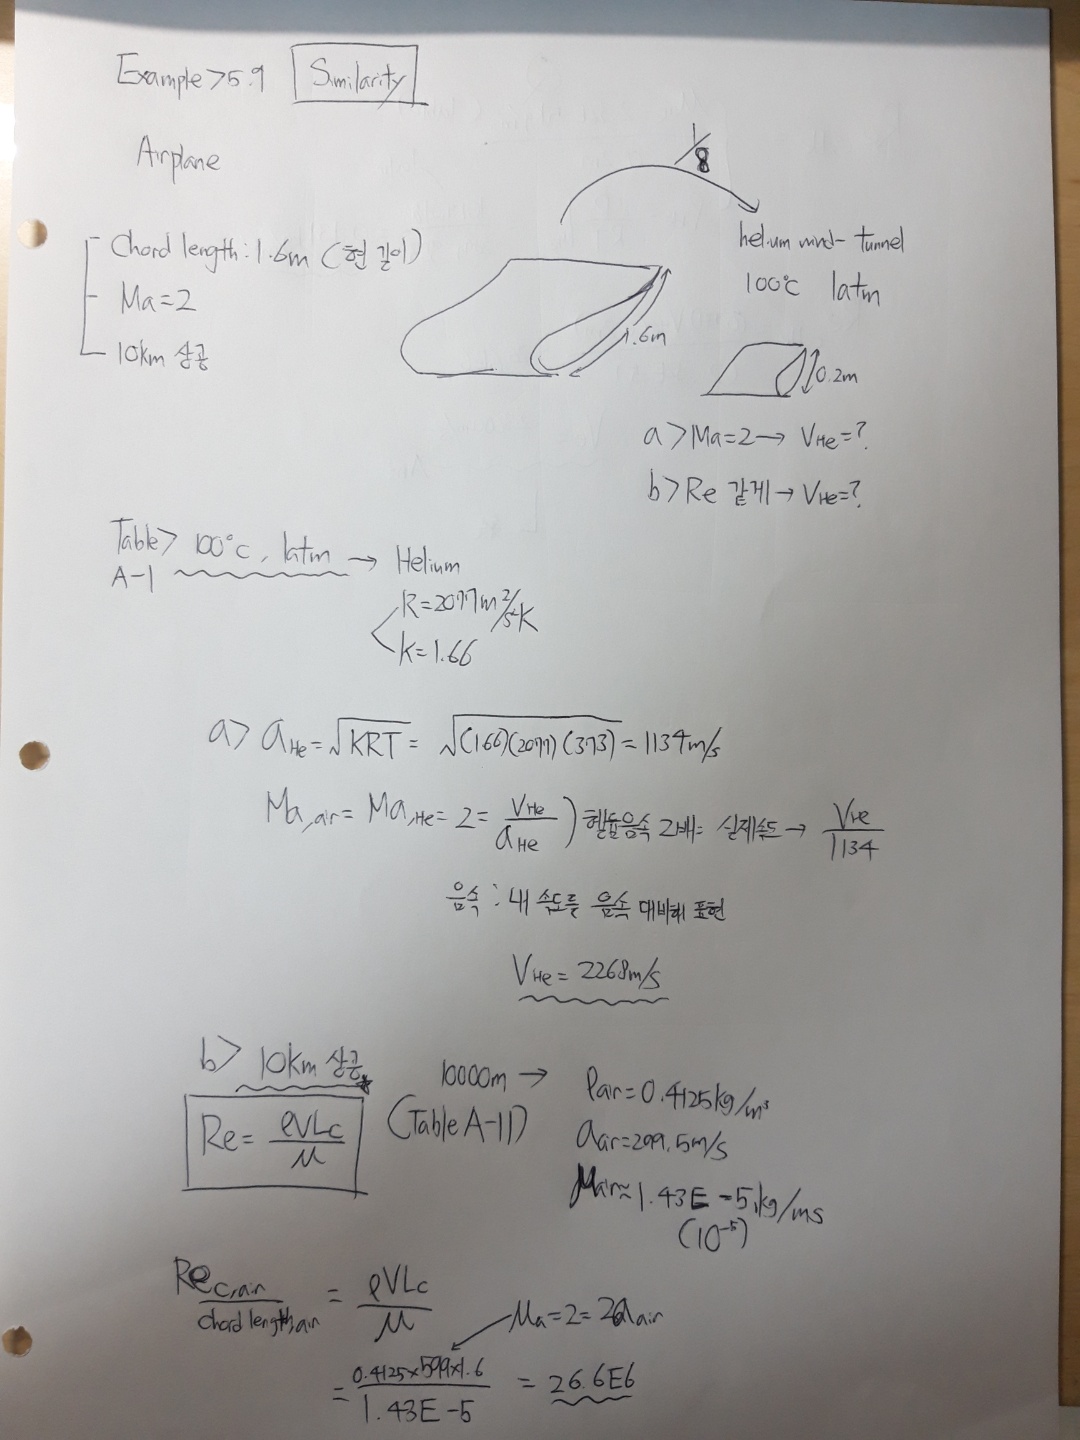 Example > 5.9 Similarity
Airplane
1/8
Chord length: 1.6m (현 길이)
Ma=2
10km 상공
helium wind-tunnel
100℃ 1atm
1.6m
0.2m
a> Ma=2 → VHe=?
b> Re 같게 → VHe=?
Table> 100℃, 1atm → Helium
A-1
R=2077m²/s²K
k=1.66
a> aHe=√KRT = √(1.66)(2077)(373) = 1134m/s
Ma,air = Ma,He = 2 = VHe/aHe ) 헬륨음속 2배는 실제속도 → VHe/1134
음속 : 내 속도를 음속 대비해 표현
VHe = 2268m/s
b> 10km 상공
10000m →
(Table A-11)
ρair=0.4125kg/m³
Re = ρVLc/μ
aair=299.5m/s
μair≈1.43E-5kg/ms
(10⁻⁵)
Rec,air = ρVLc/μ
chord length,air
Ma=2=2aair
= 0.4125×599×1.6/1.43E-5 = 26.6E6